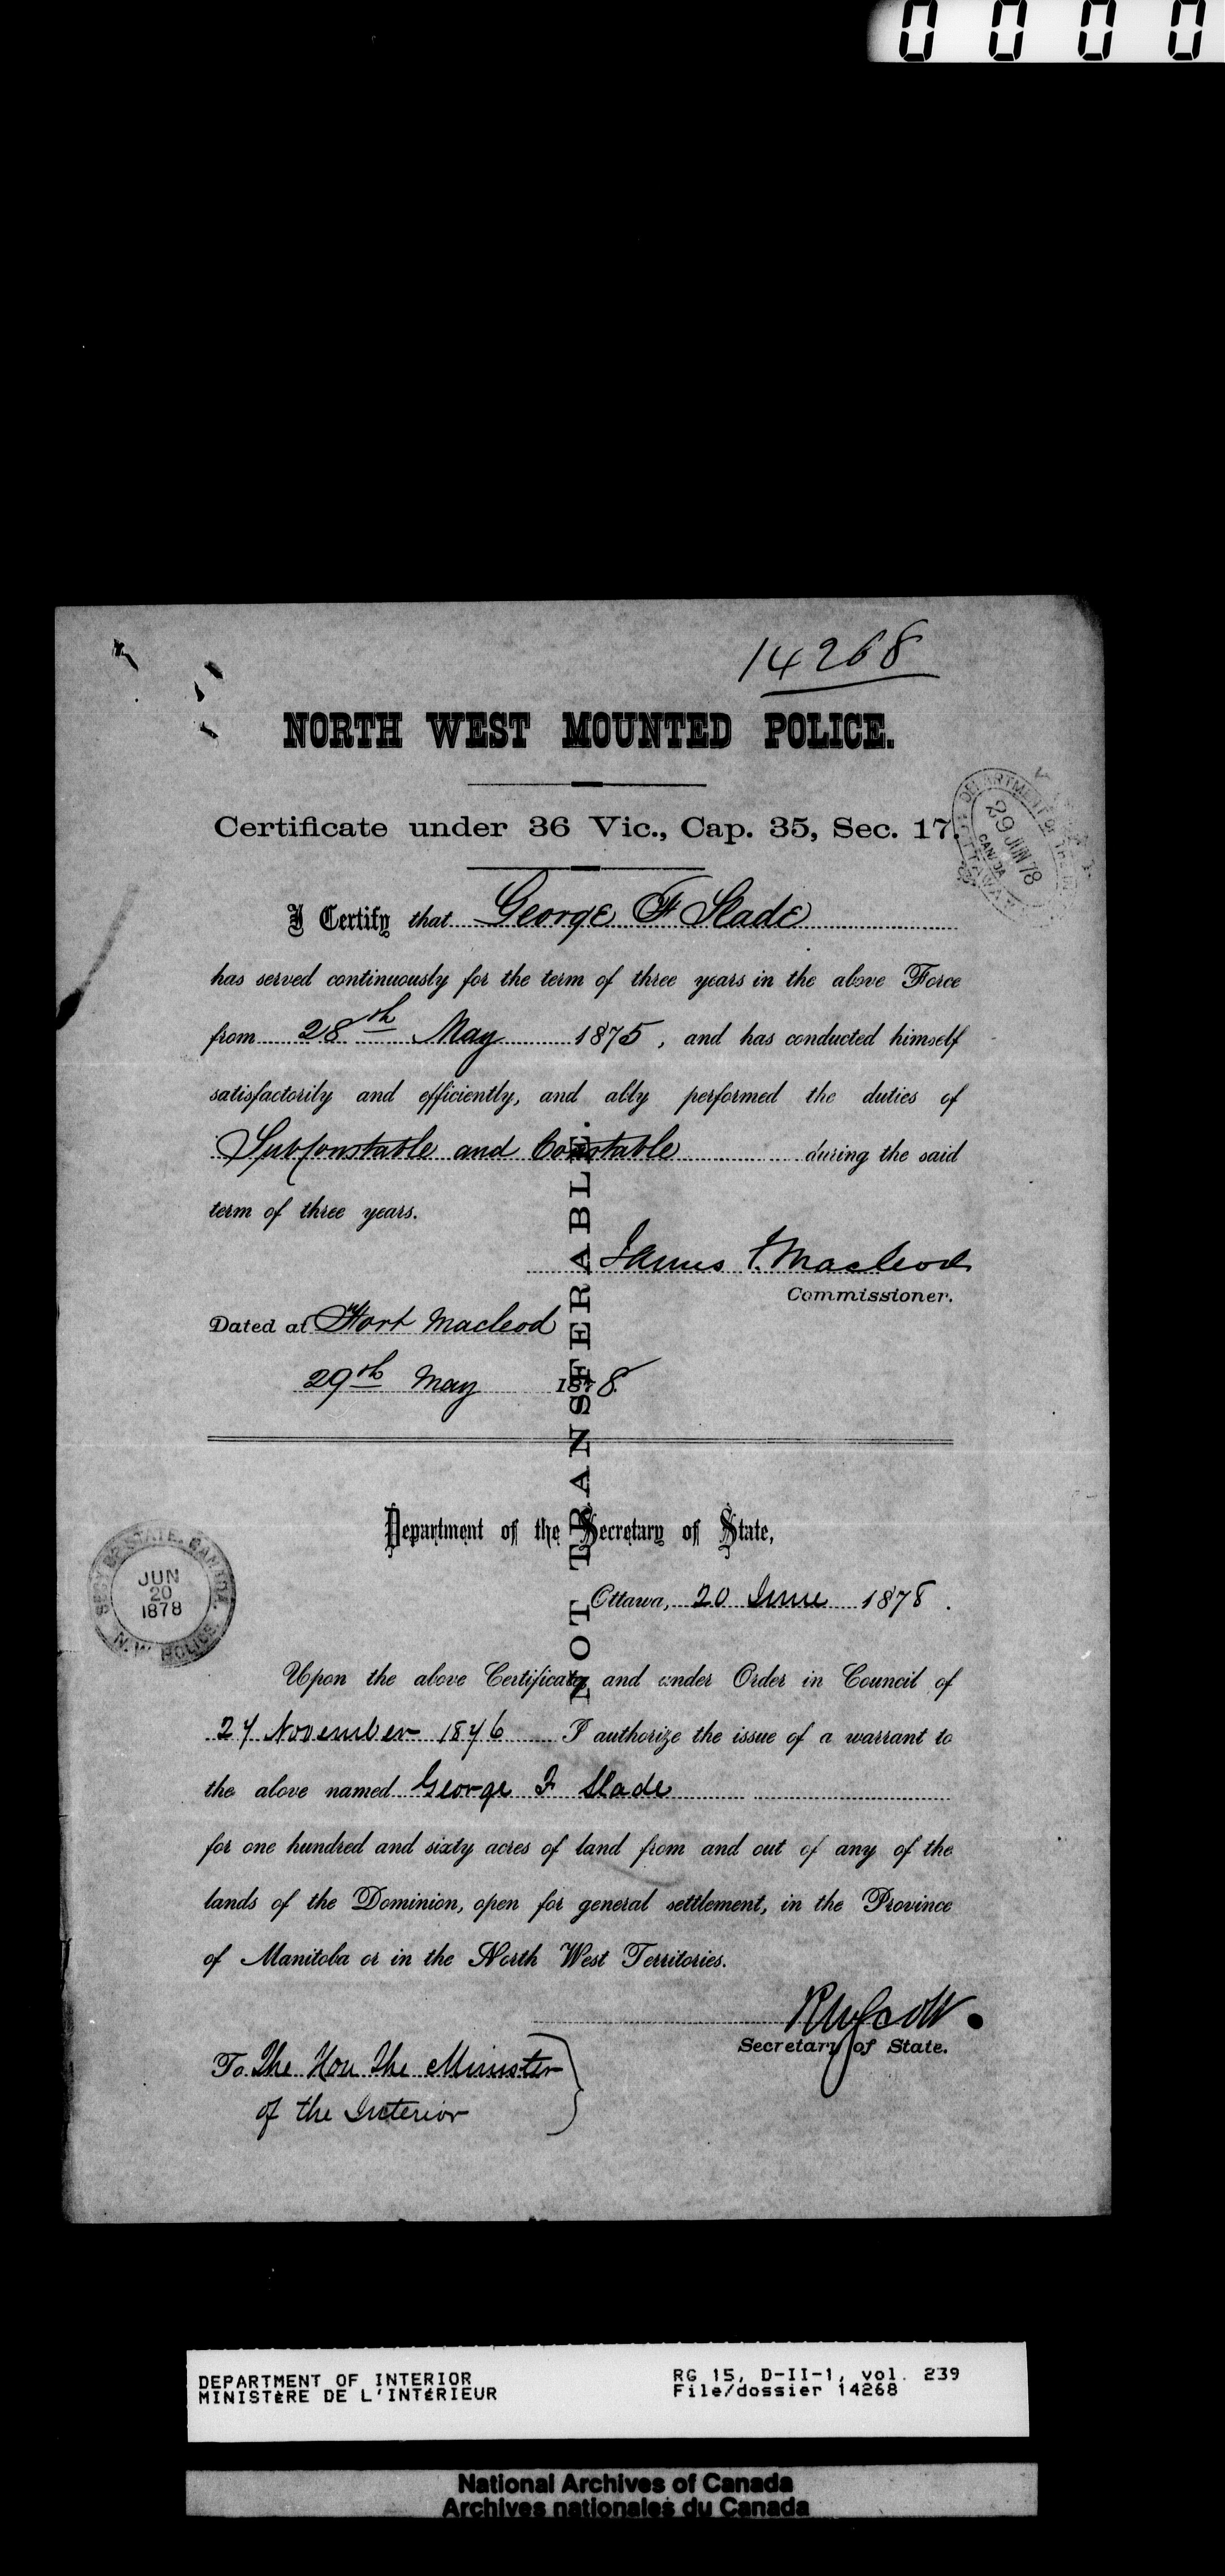 0 0 0 0
14268
NORTH WEST MOUNTED POLICE.
Certificate under 36 Vic., Cap. 35, Sec. 17.
DEPARTMENT OF THE
29 JUN 78
CANADA
OTTAWA
I Certify that George F Slade
has served continuously for the term of three years in the above Force
from 28th May 1875, and has conducted himself
satisfactorily and efficiently, and ably performed the duties of
SubConstable and Constable during the said
term of three years.
James F. Macleod
Commissioner.
Dated at Fort Macleod
29th May 1878.
NOT TRANSFERABLE.
Department of the Secretary of State,
SECY OF STATE, CANADA.
JUN
20
1878
N.W. POLICE.
Ottawa, 20 June 1878.
Upon the above Certificate, and under Order in Council of
27 November 1876 I authorize the issue of a warrant to
the above named George F Slade
for one hundred and sixty acres of land from and out of any of the
lands of the Dominion, open for general settlement, in the Province
of Manitoba or in the North West Territories.
RWScott
Secretary of State.
To The Hon The Minister
of the Interior
DEPARTMENT OF INTERIOR
MINISTÈRE DE L'INTÉRIEUR
RG 15, D-II-1, vol. 239
File/dossier 14268
National Archives of Canada
Archives nationales du Canada